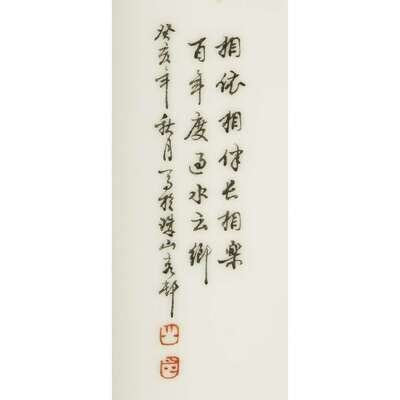 相依相伴长相樂
百年度過水云鄉
癸亥年秋月写於珠山客邨